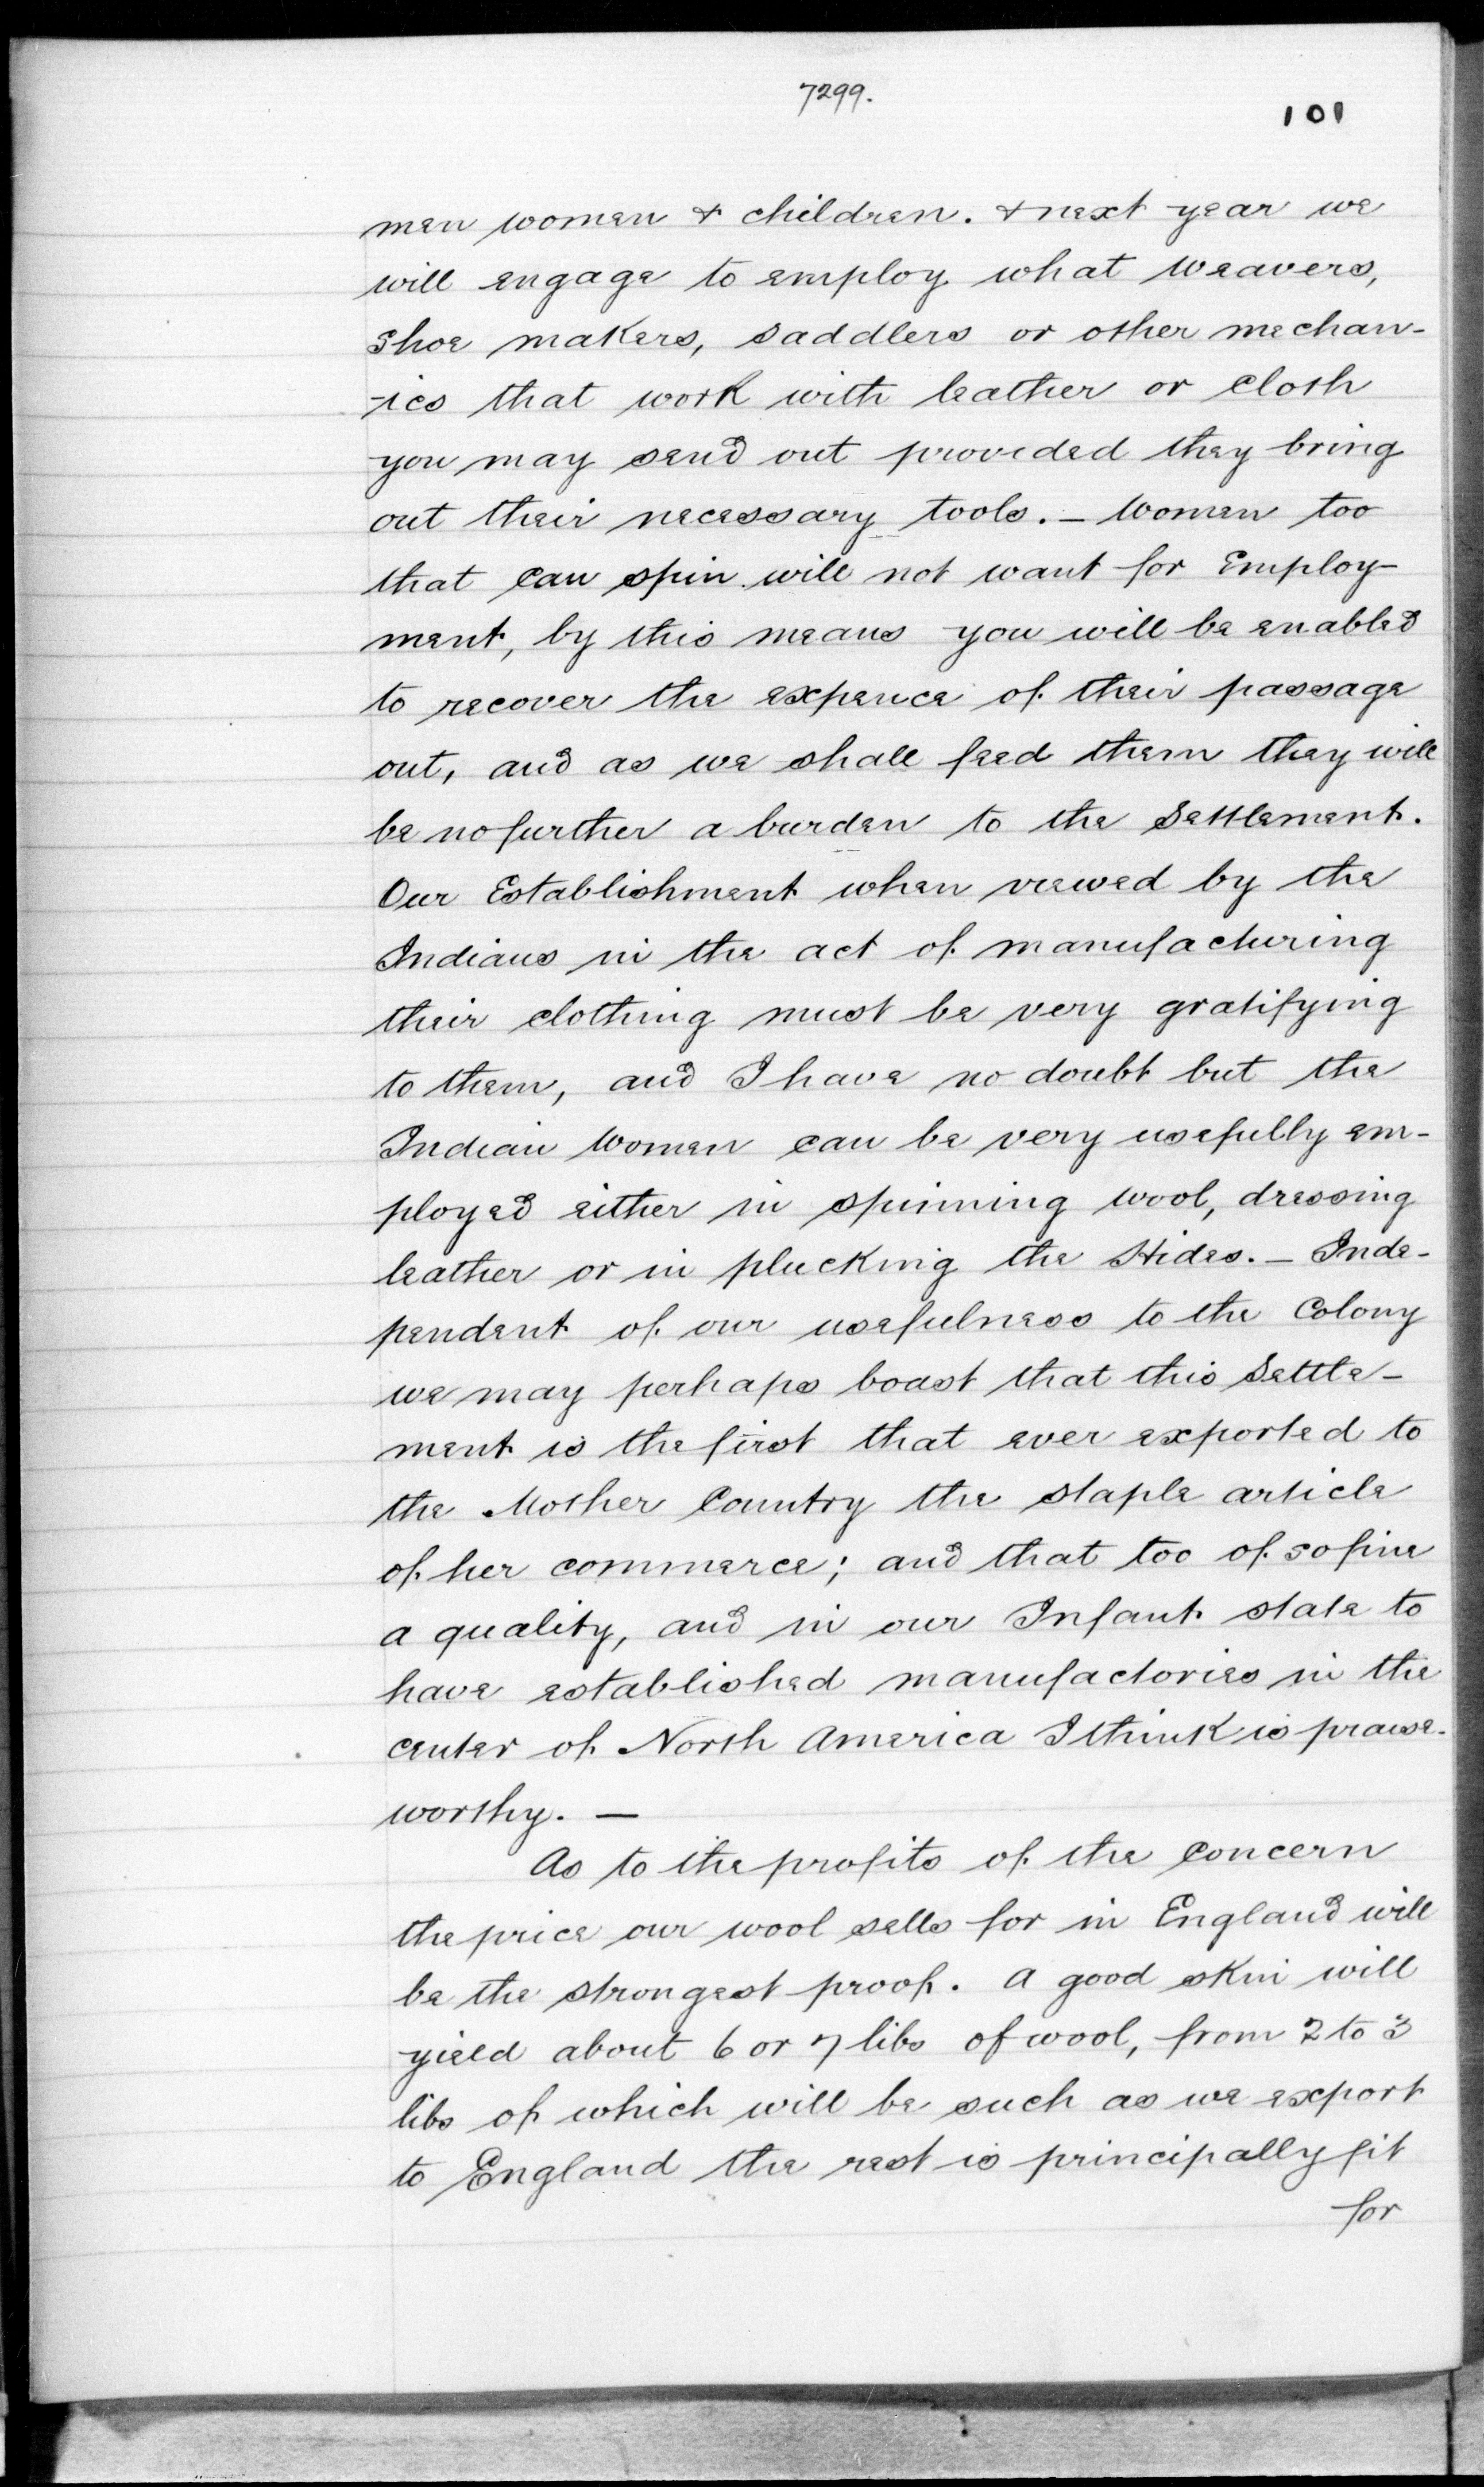 7299.
101
men women & children. & next year we
will engage to employ what weavers,
shoe makers, saddlers or other mechan-
-ics that work with leather or cloth
you may send out provided they bring
out their necessary tools. – Women too
that can spin will not want for Employ-
ment, by this means you will be enabled
to recover the expence of their passage
out, and as we shall feed them they will
be no further a burden to the Settlement.
Our Establishment when viewed by the
Indians in the act of manufacturing
their clothing must be very gratifying
to them, and I have no doubt but the
Indian Women can be very usefully em-
ployed either in spinning wool, dressing
leather or in plucking the Hides. – Inde-
pendent of our usefulness to the Colony
we may perhaps boast that this Settle-
ment is the first that ever exported to
the Mother Country the staple article
of her commerce; and that too of so fine
a quality, and in our Infant state to
have established manufactories in the
center of North America I think is praise-
worthy. –
As to the profits of the Concern
the price our wool sells for in England will
be the strongest proof. A good skin will
yield about 6 or 7 libs of wool, from 2 to 3
libs of which will be such as we export
to England the rest is principally fit
for